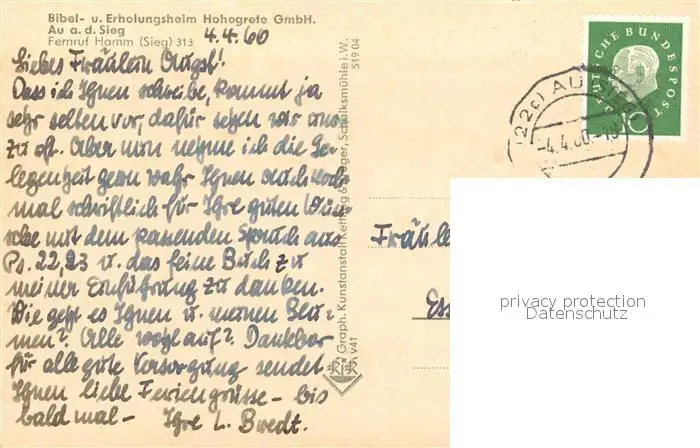 Bibel- u. Erholungsheim Hohegrete GmbH.
Au a. d. Sieg
Fernruf Hamm (Sieg) 313
4.4.60
Liebes Fräulein Augst!
Dass ich Ihnen schreibe, kommt ja
sehr selten vor, dafür sehen wir uns
zu oft. Aber nun nehme ich die Ge-
legenheit gern wahr Ihnen auch noch
mal schriftlich für Ihre guten Wün-
sche mit dem passenden Spruch aus
Ps. 22,23 u. das feine Buch zu
meiner Einführung zu danken.
Wie geht es Ihnen u. meinen Blu-
men? Alle wohl auf? Dankbar
für alle gute Versorgung sendet
Ihnen liebe Feriengrüsse - bis
bald mal - Ihre L. Bredt.
Graph. Kunstanstalt Kettling & Krüger, Schalksmühle i. W.
519 04
V41
KK
DEUTSCHE BUNDESPOST
10
(22c) AU (SIEG)
-4.4.60.-
Fräule
Ess
privacy protection
Datenschutz